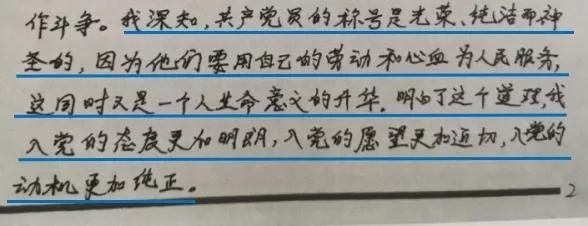 作斗争。我深知,共产党员的称号是光荣、纯洁而神
圣的,因为他们要用自己的劳动和心血为人民服务,
这同时又是一个人生命意义的升华。明白了这个道理,我
入党的态度更加明朗,入党的愿望更加迫切,入党的
动机更加纯正。
2